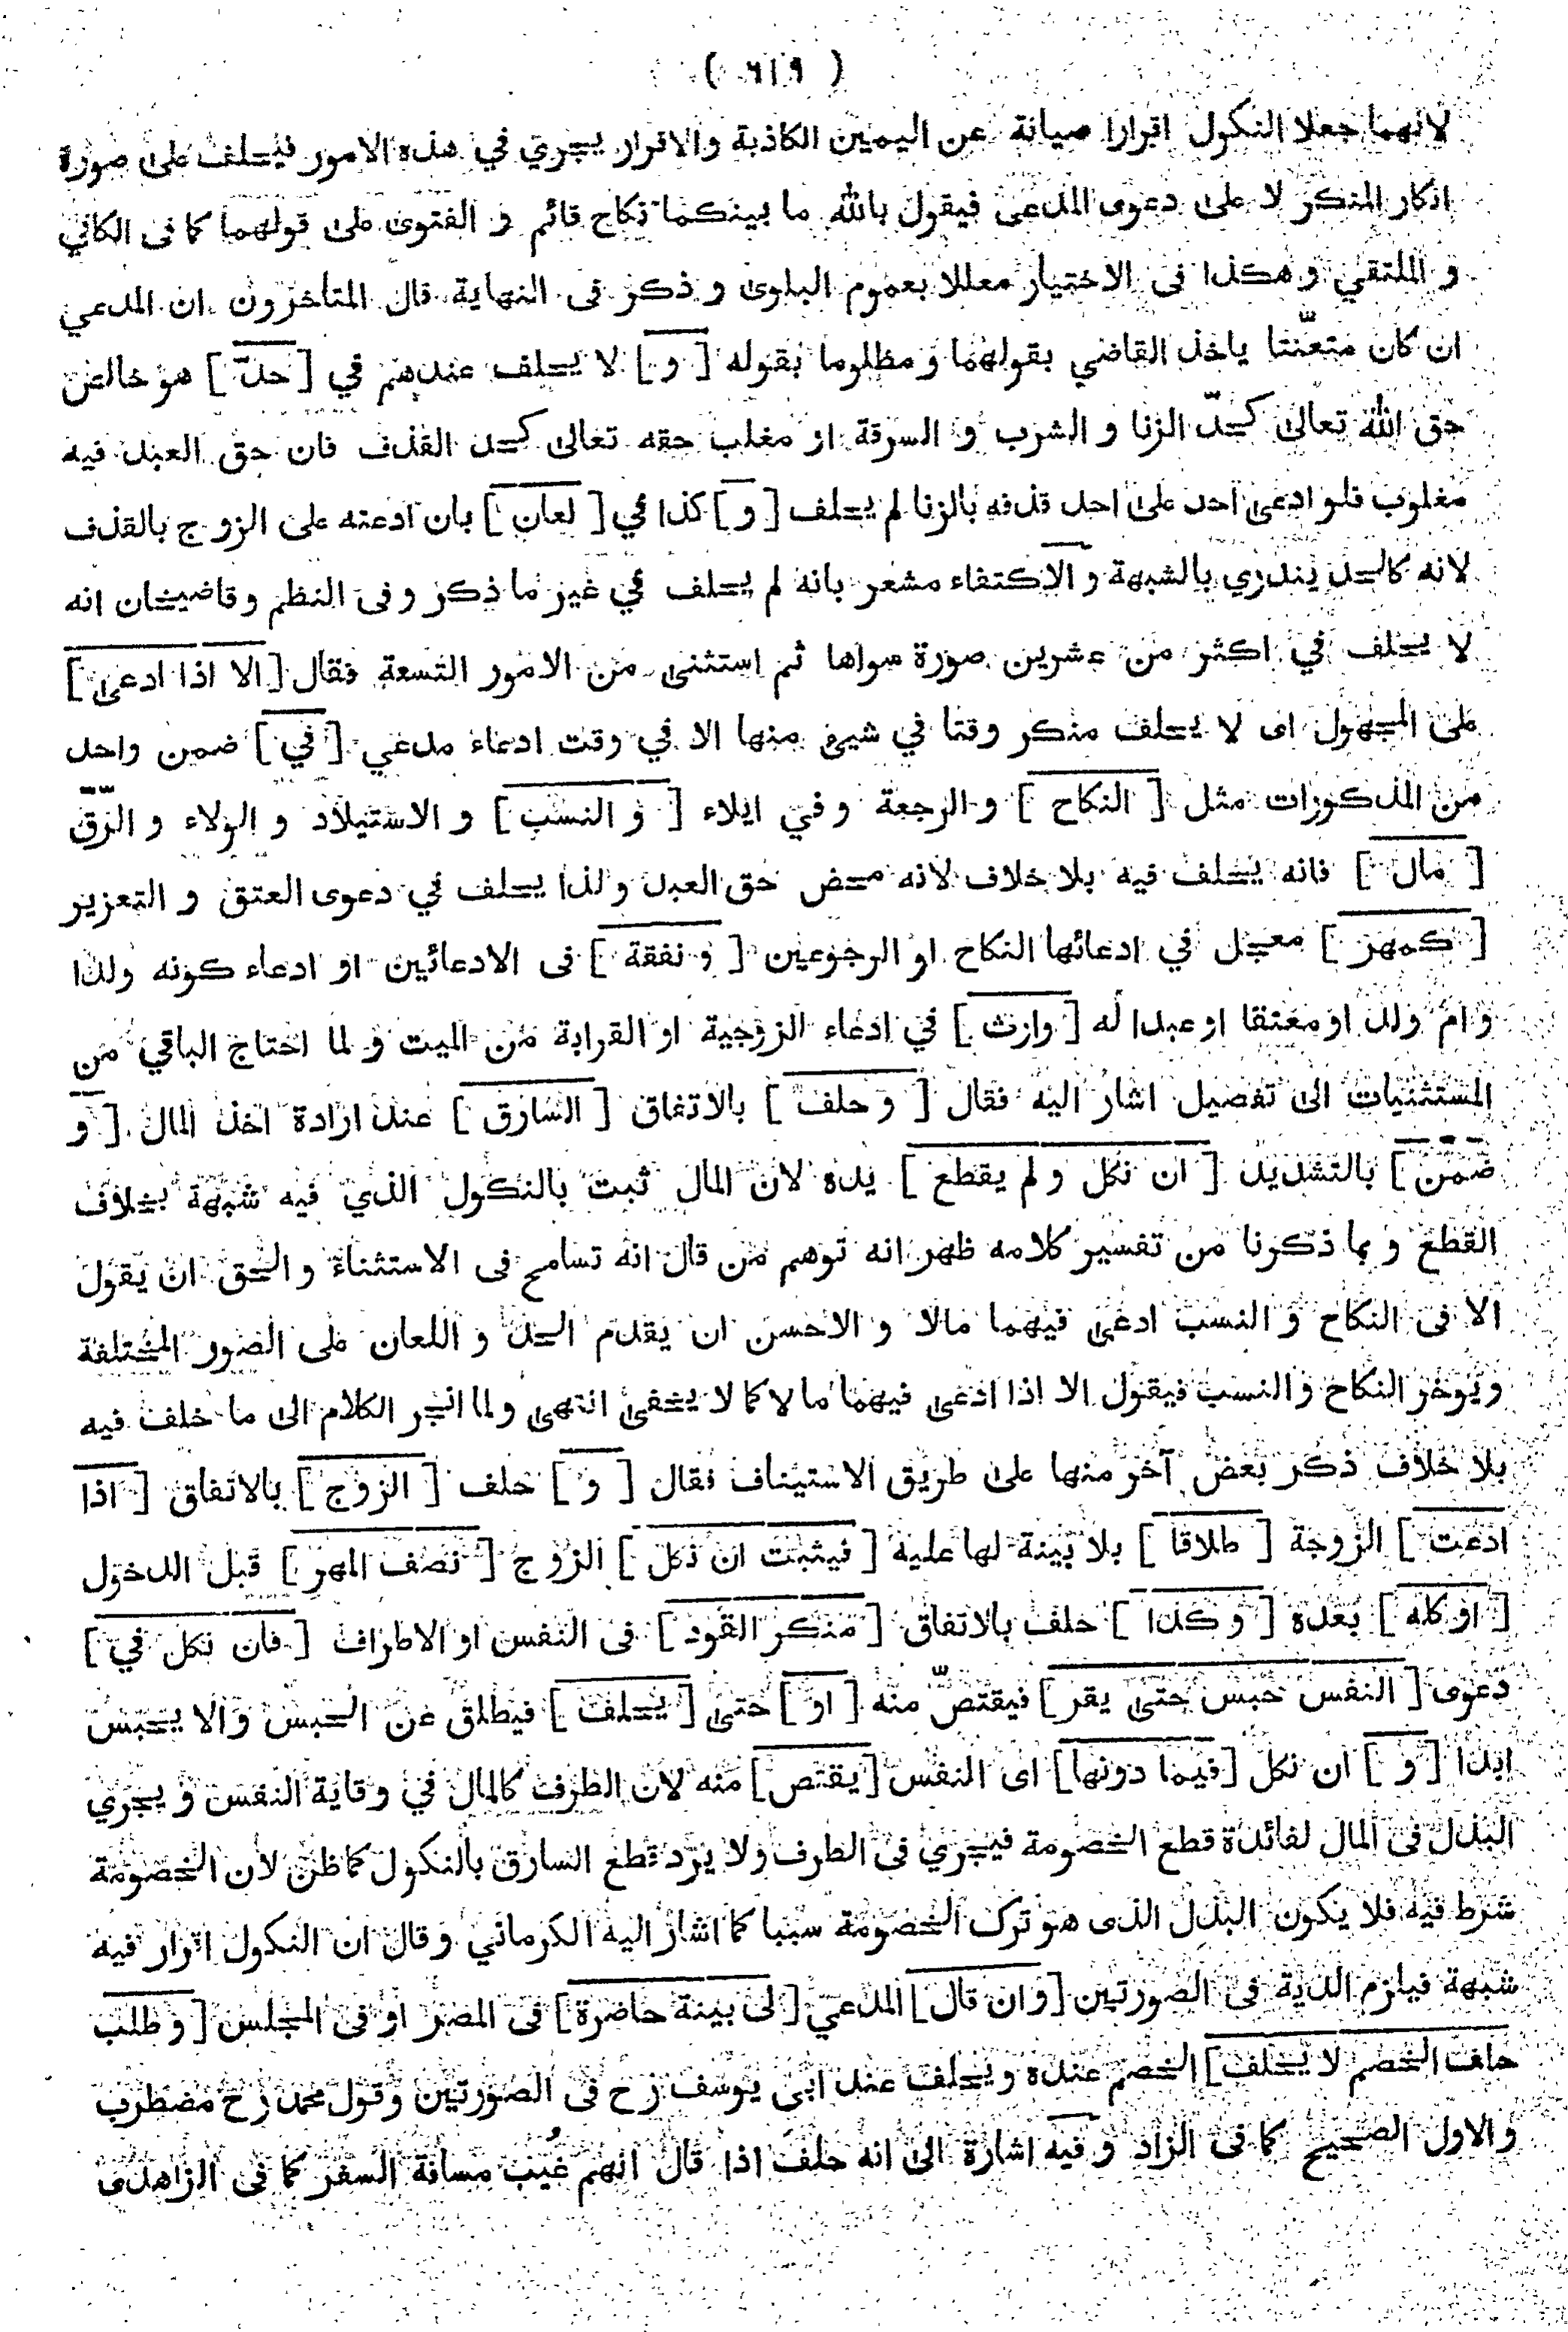 ( ٦١٩ )
لانهما جعلا النكول اقرارا صيانة عن اليمين الكاذبة والاقرار يجري في هذه الامور فيحلف على صورة
انكار المنكر لا على دعوى المدعى فيقول بالله ما بينكما نكاح قائم و الفتوى على قولهما كما فى الكافي
و الملتقي و هكذا فى الاختيار معللا بعموم البلوى و ذكر فى النهاية قال المتاخرون ان المدعي
ان كان متعنّتا ياخذ القاضي بقولهما و مظلوما بقوله [ و ] لا يحلف عندهم في [ حدّ ] هو خالعن
حق الله تعالى كحدّ الزنا و الشرب و السرقة او مغلب حقه تعالى كحد القذف فان حق العبد فيه
مغلوب فلو ادعى احد على احد قذفه بالزنا لم يحلف [ و ] كذا في [ لعان ] بان ادعته على الزوج بالقذف
لانه كالحد يندري بالشبهة و الاكتفاء مشعر بانه لم يحلف في غير ما ذكر و فى النظم و قاضيخان انه
لا يحلف في اكثر من عشرين صورة سواها ثم استثنى من الامور التسعة فقال [ الا اذا ادعى ]
على المجهول اى لا يحلف منكر وقتا في شيئ منها الا في وقت ادعاء مدعي [ في ] ضمن واحد
من المذكورات مثل [ النكاح ] و الرجعة و في ايلاء [ و النسب ] و الاستيلاد و الولاء و الرّقّ
[ مال ] فانه يحلف فيه بلا خلاف لانه محض حق العبد و لذا يحلف في دعوى العتق و التعزير
[ كمهر ] معجل في ادعائها النكاح او الرجوعين [ و نفقة ] فى الادعائين او ادعاء كونه ولدا
و ام ولد او معتقا او عبدا له [ وارث ] في ادعاء الزوجية او القرابة من الميت و لما احتاج الباقي من
المستثنيات الى تفصيل اشار اليه فقال [ و حلف ] بالاتفاق [ السارق ] عند ارادة اخذ المال [ و
ضمّن ] بالتشديد [ ان نكل و لم يقطع ] يده لان المال ثبت بالنكول الذي فيه شبهة بخلاف
القطع و بما ذكرنا من تفسير كلامه ظهر انه توهم من قال انه تسامح فى الاستثناء و الحق ان يقول
الا فى النكاح و النسب ادعى فيهما مالا و الاحسن ان يقدم الحد و اللعان على الصور المختلفة
ويوخر النكاح و النسب فيقول الا اذا ادعى فيهما مالا كما لا يخفى انتهى و لما انجر الكلام الى ما حلف فيه
بلا خلاف ذكر بعض آخر منها على طريق الاستيناف فقال [ و ] حلف [ الزوج ] بالاتفاق [ اذا
ادعت ] الزوجة [ طلاقا ] بلا بينة لها عليه [ فيثبت ان نكل ] الزوج [ نصف المهر ] قبل الدخول
[ او كله ] بعده [ و كذا ] حلف بالاتفاق [ منكر القود ] فى النفس او الاطراف [ فان نكل في ]
دعوى [ النفس حبس حتى يقر ] فيقتصّ منه [ او ] حتى [ يحلف ] فيطلق عن الحبس و الا يحبس
ابدا [ و ] ان نكل [ فيما دونها ] اى النفس [ يقتص ] منه لان الطرف كالمال في وقاية النفس و يجري
البدل فى المال لفائدة قطع الخصومة فيجري فى الطرف ولا يرد قطع السارق بالنكول كما ظن لان الخصومة
شرط فيه فلا يكون البدل الذى هو ترك الخصومة سببا كما اشار اليه الكرماني و قال ان النكول اقرار فيه
شبهة فيلزم الدية فى الصورتين [ وان قال ] المدعي [ لى بينة حاضرة ] فى المصر او فى المجلس [ و طلب
حلف الخصم لا يحلف ] الخصم عنده و يحلف عند ابى يوسف رح فى الصورتين و قول محمد رح مضطرب
و الاول الصحيح كما فى الزاد و فيه اشارة الى انه حلف اذا قال انهم غُيب مسافة السفر كما فى الزاهدى